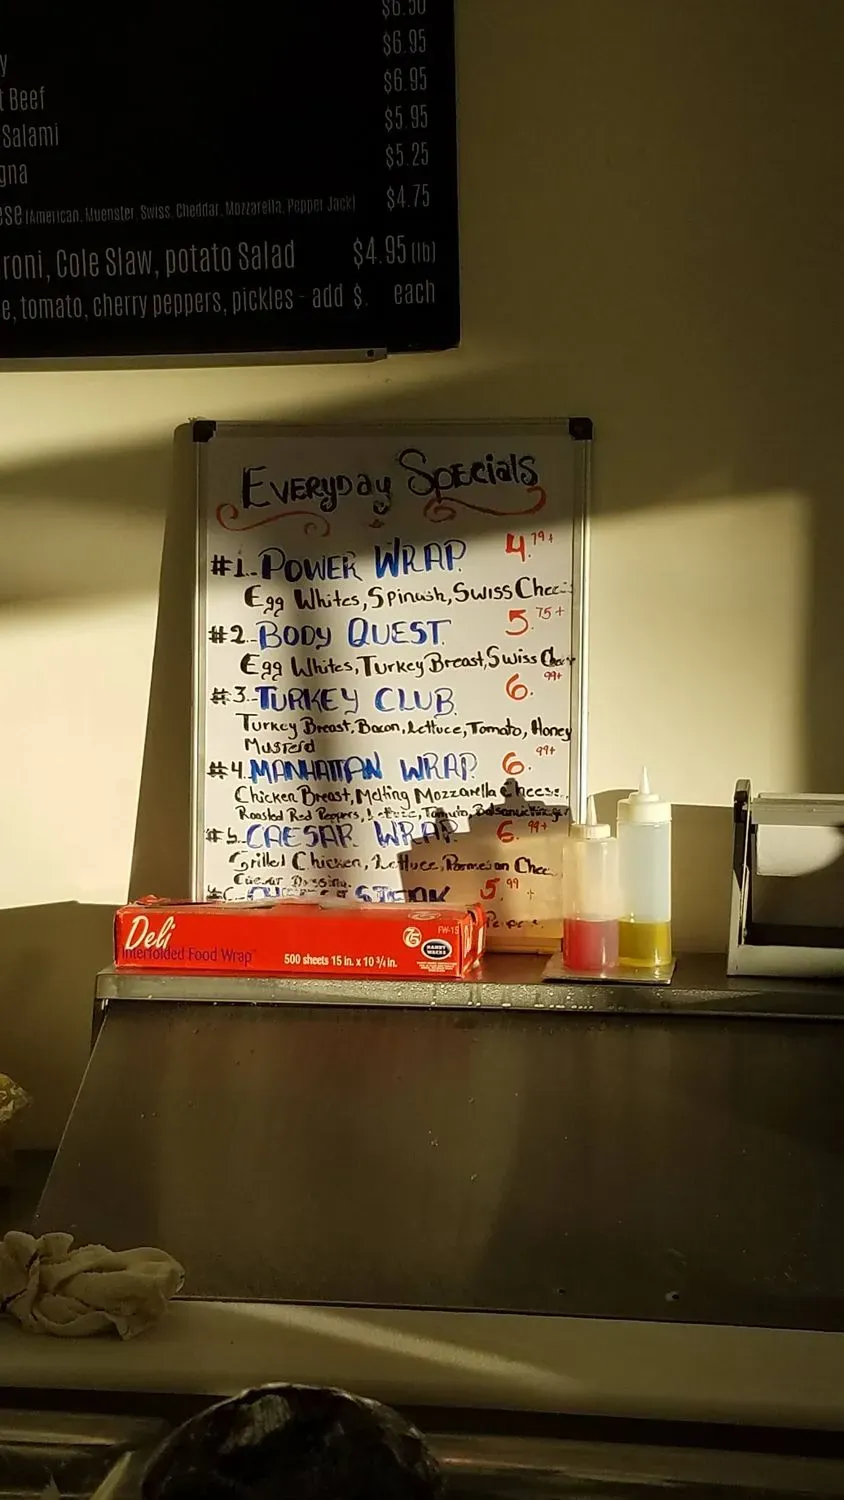 $6.50
$6.95
y $6.95
t Beef $5.95
Salami $5.25
gna $4.75
ese (American, Muenster, Swiss, Cheddar, Mozzarella, Pepper Jack)
roni, Cole Slaw, potato Salad $4.95 (lb)
e, tomato, cherry peppers, pickles - add $. each
Everyday Specials
#1. Power Wrap 4.79+
Egg Whites, Spinash, Swiss Chee
#2. Body Quest 5.75+
Egg Whites, Turkey Breast, Swiss
#3. Turkey Club 6.99+
Turkey Breast, Bacon, Lettuce, Tomato, Honey
Musterd
#4. Manhattan Wrap 6.99+
Chicken Breast, Melting Mozzarella Cheese,
Roasted Red Peppers, Lettuce, Tomato,
#5. Caesar Wrap 6.99+
Grilled Chicken, Lettuce, Parmesan Chee
Caesar Dressing.
Steak 5.99+
Deli
Interfolded Food Wrap
500 sheets 15 in. x 10 3/4 in.
75
FW-15
HANDY WACKS